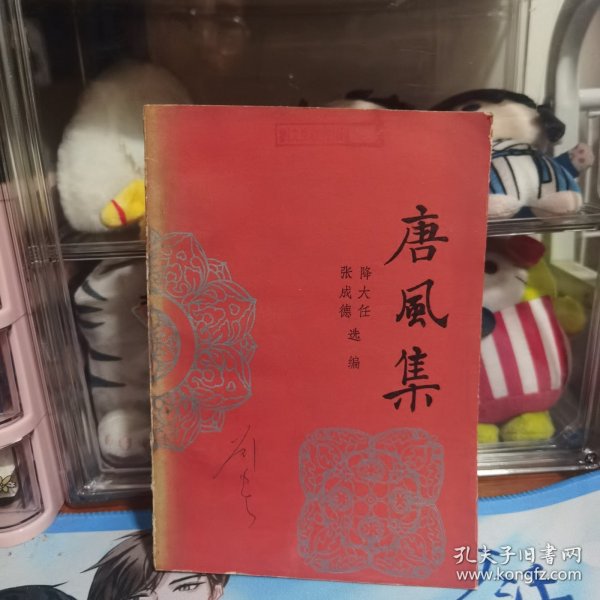 唐風集
降大任
张成德
选编
孔夫子旧書网
www.kongfz.com